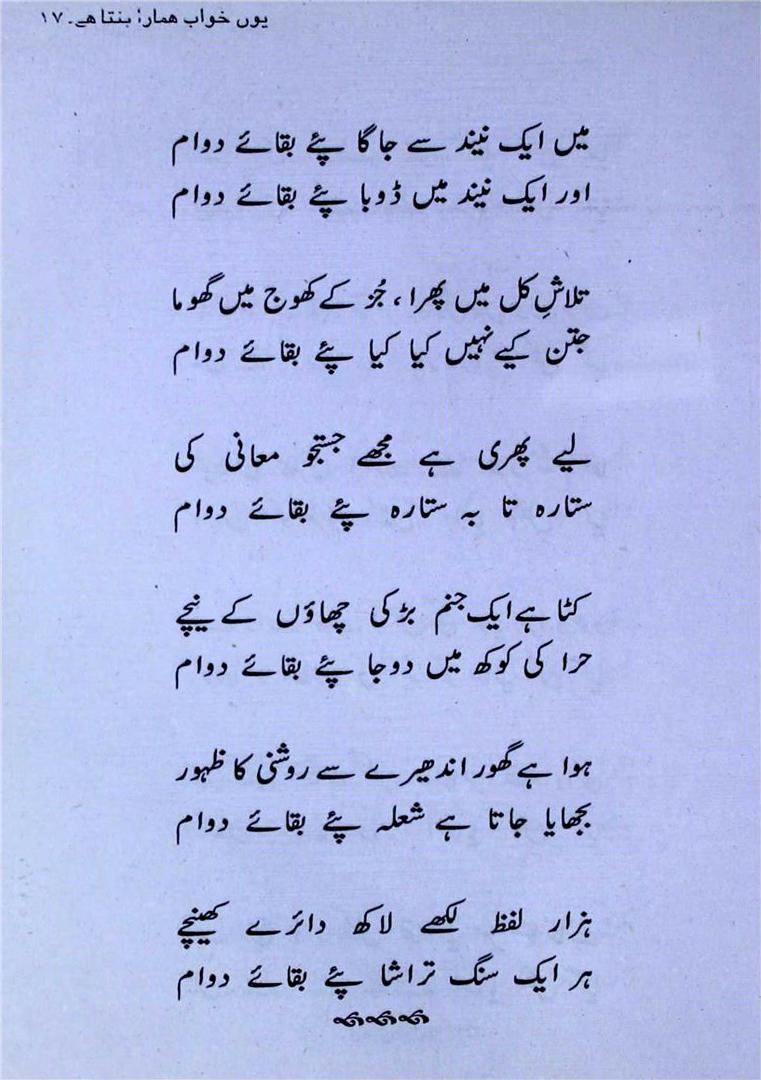 یوں خواب ہمارا بنتا ہے۔ ۱۷
میں ایک نیند سے جاگا پئے بقائے دوام
اور ایک نیند میں ڈوبا پئے بقائے دوام
تلاشِ کل میں پھرا، جُز کے کھوج میں گھوما
جتن کیے نہیں کیا کیا پئے بقائے دوام
لیے پھری ہے مجھے جستجو معانی کی
ستارہ تا بہ ستارہ پئے بقائے دوام
کٹا ہے ایک جنم بڑ کی چھاؤں کے نیچے
حرا کی کوکھ میں دوجا پئے بقائے دوام
ہوا ہے گھور اندھیرے سے روشنی کا ظہور
بجھایا جاتا ہے شعلہ پئے بقائے دوام
ہزار لفظ لکھے لاکھ دائرے کھینچے
ہر ایک سنگ تراشا پئے بقائے دوام